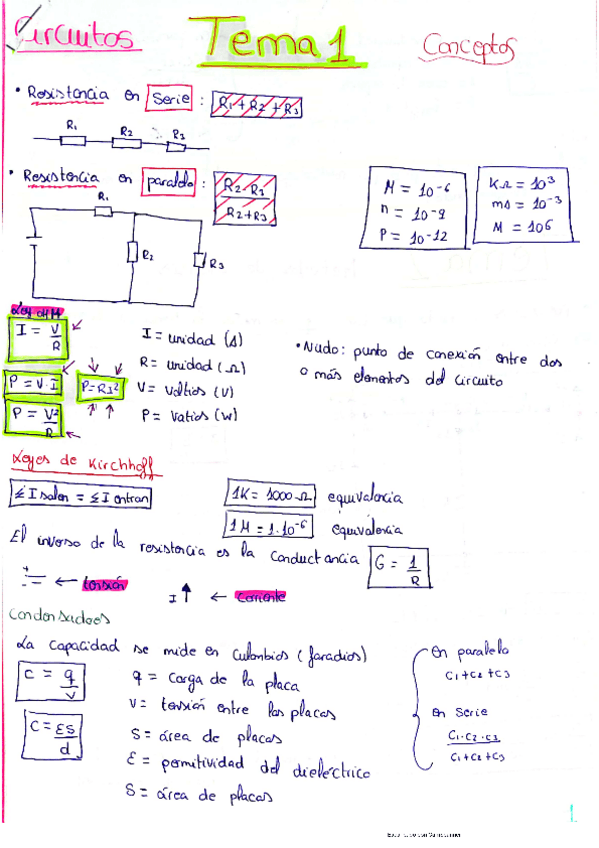 Circuitos Tema 1 Conceptos
• Resistencia en Serie : R1 + R2 + R3
R1 R2 R3
• Resistencia en paralelo :
R2·R3
R2+R3
R1
R2
R3
M = 10-6
n = 10-9
P = 10-12
KΩ = 10³
mA = 10-3
M = 106
Ley oHM
I = V
R
P = V·I
P=RI²
P = V²
R
I = unidad (A)
R = unidad (Ω)
V = Voltios (V)
P = Vatios (W)
• Nudo: punto de conexión entre dos
o más elementos del circuito
Leyes de Kirchhoff
≤ I salen = ≤ I entran
1K = 1000 Ω equivalencia
1M = 1·10-6 equivalencia
El inverso de la resistencia es la conductancia
G = 1
R
+
- ← tensión
I ↑ ← corriente
Condensadores
La capacidad se mide en Culombios (faradios)
C = q
V
C = ES
d
q = carga de la placa
V = tensión entre las placas
S = área de placas
E = permitividad del dieléctrico
S = área de placas
en paralelo
C1+C2+C3
en serie
C1·C2·C3
C1+C2+C3
1